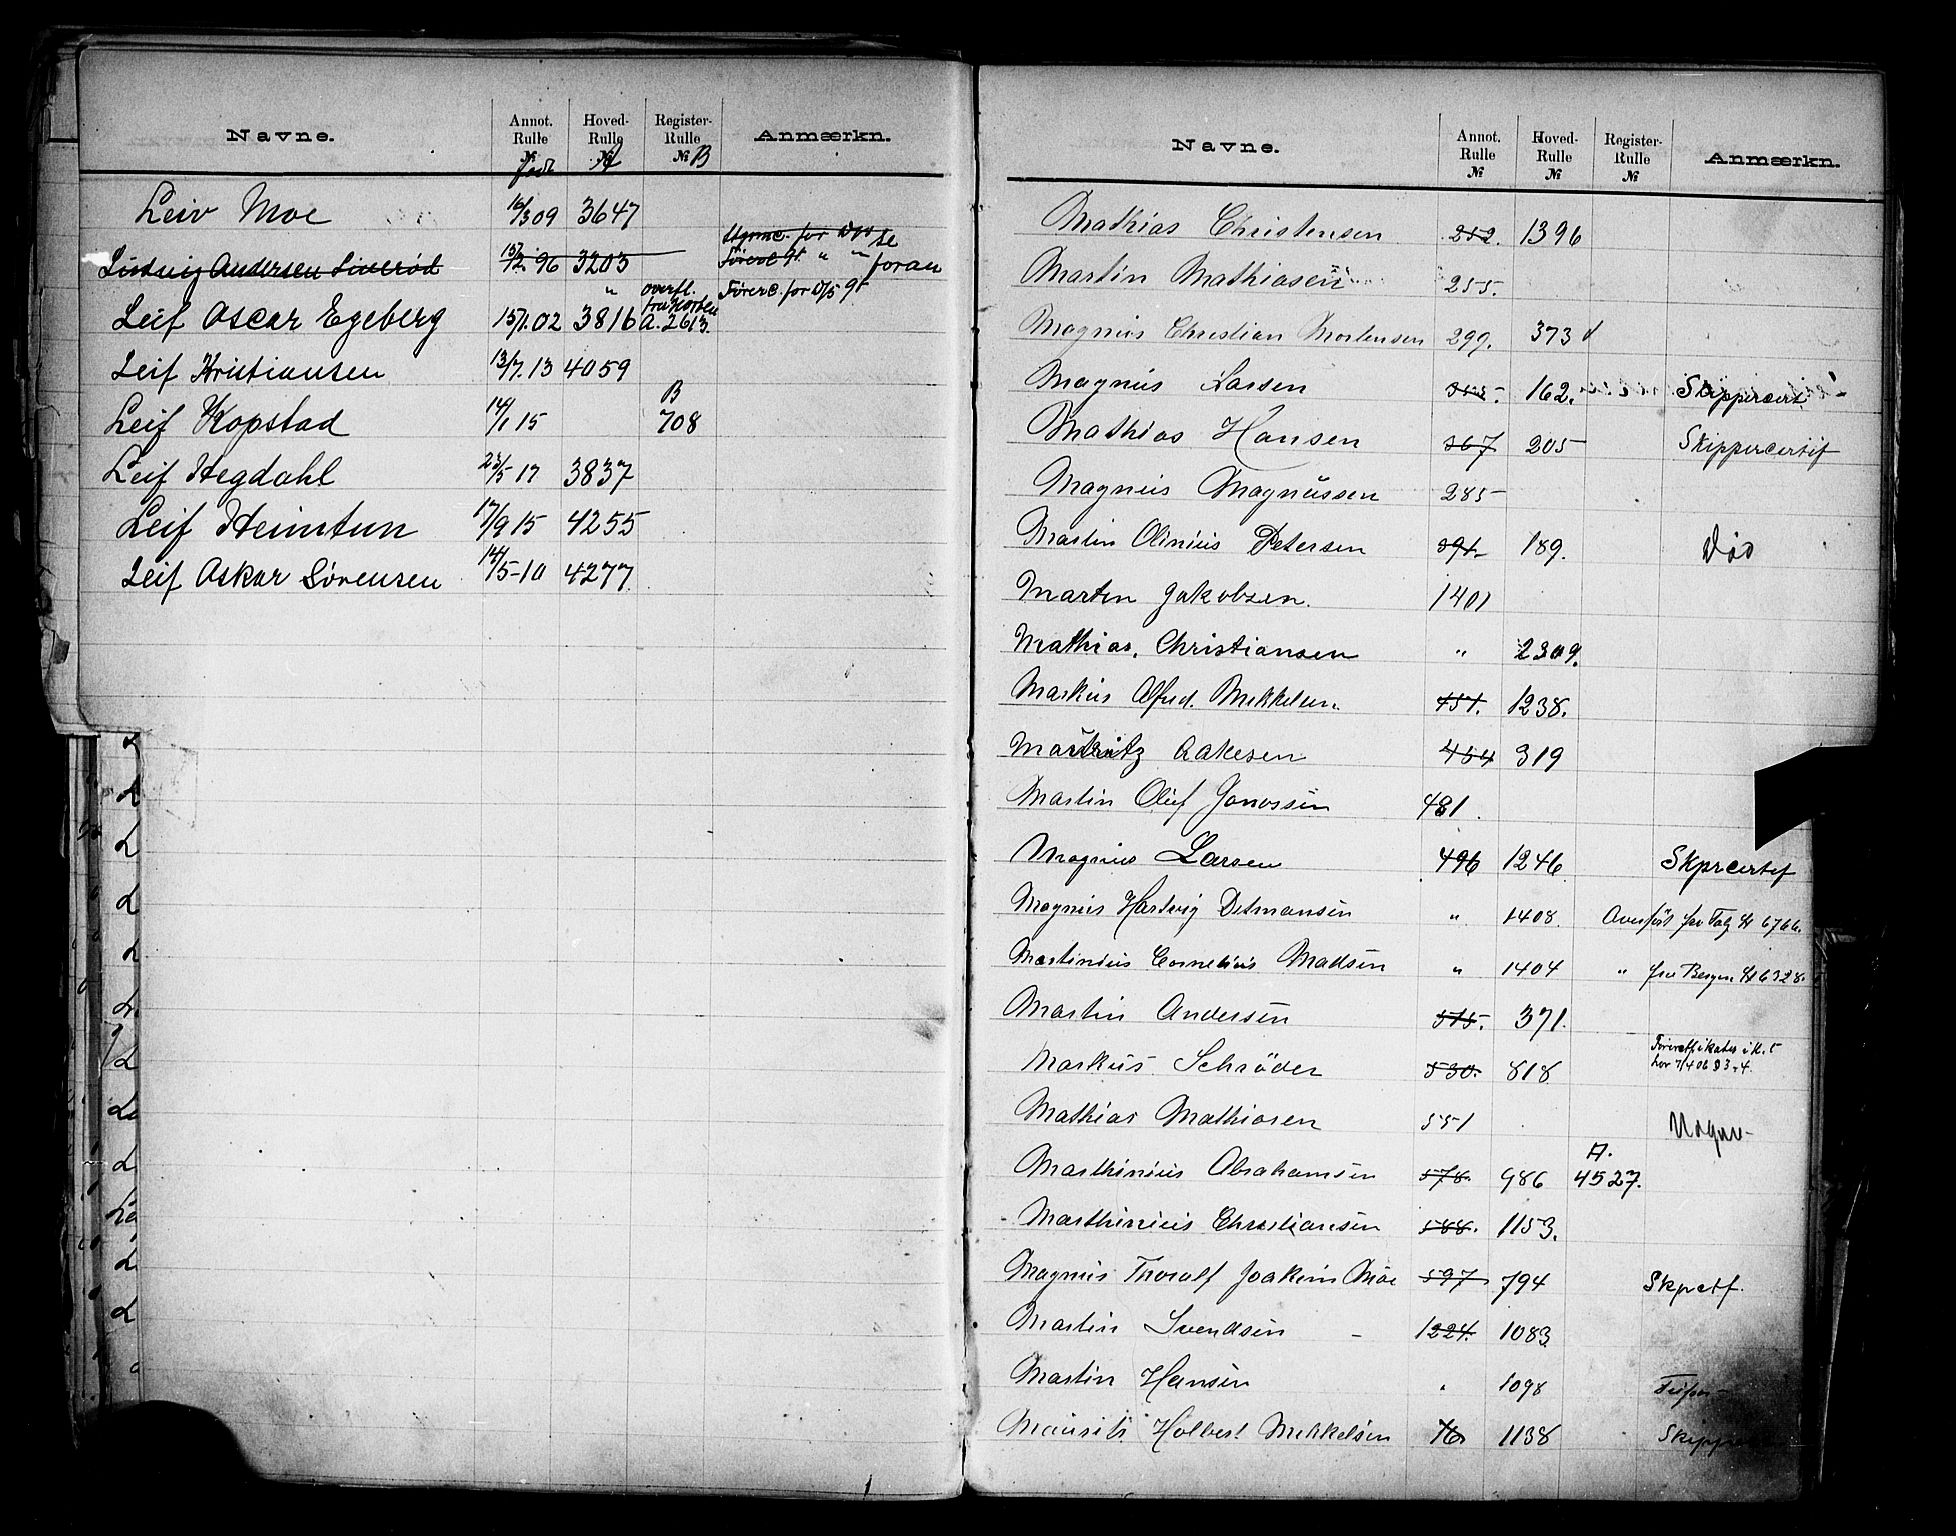 Navne.
Annot. Rulle № Født
Hoved-Rulle № A
Register-Rulle № B
Anmærkn.
Leiv Moe 16/3 09 3647
Ludvig Andersen Siverød 15/2 96 3203 Styrmc. for D/S se
Førerc. gt " " foran
" overfl. Førerc. for D/S gt
fra Horten
Leif Oscar Egeberg 15/1.02 3816 A.2613.
Leif Kristiansen 13/7.13 4059
B
Leif Kopstad 14/1 15 708
Leif Hegdahl 23/5 17 3837
Leif Heimtun 17/9 15 4255
Leif Askar Sørensen 14/5-10 4277.
Navne.
Annot. Rulle №
Hoved-Rulle №
Register-Rulle №
Anmærkn.
Mathias Christensen 252. 1396
Martin Mathiasen 255.
Magnus Christian Mortensen 299. 373
Magnus Larsen 162. Skippercert
Mathias Hansen 367 205 Skippercertif
Magnus Magnussen 285
Martin Olinius Petersen 391. 189. Død
Martin Jakobsen. 1401
Mathias. Christiansen " 2309.
Markus Alfred. Mikkelsen. 451. 1238.
Mauritz Aakesen 454 319
Martin Oluf Janossen 481.
Magnus Larsen 496 1246 Skprcertif
Magnus Hartvig Ditmansen " 1408. Overført fra Tbg A 6766.
Martinius Cornelius Madsen " 1404 " fra Bergen A 6328.
Martin Andersen 515. 371.
Markus Schrøder 530. 818
Mathias Mathiasen 551
A.
Marthinius Abrahamsen 578. 986 4527.
Marthinius Christiansen 588. 1153.
Magnus Thoralf Joakim Moe 597 794 Skprctf.
Martin Svendsen - 1224. 1083
Martin Hansen 1098
Maurits Holbert Mikkelsen 76 1138